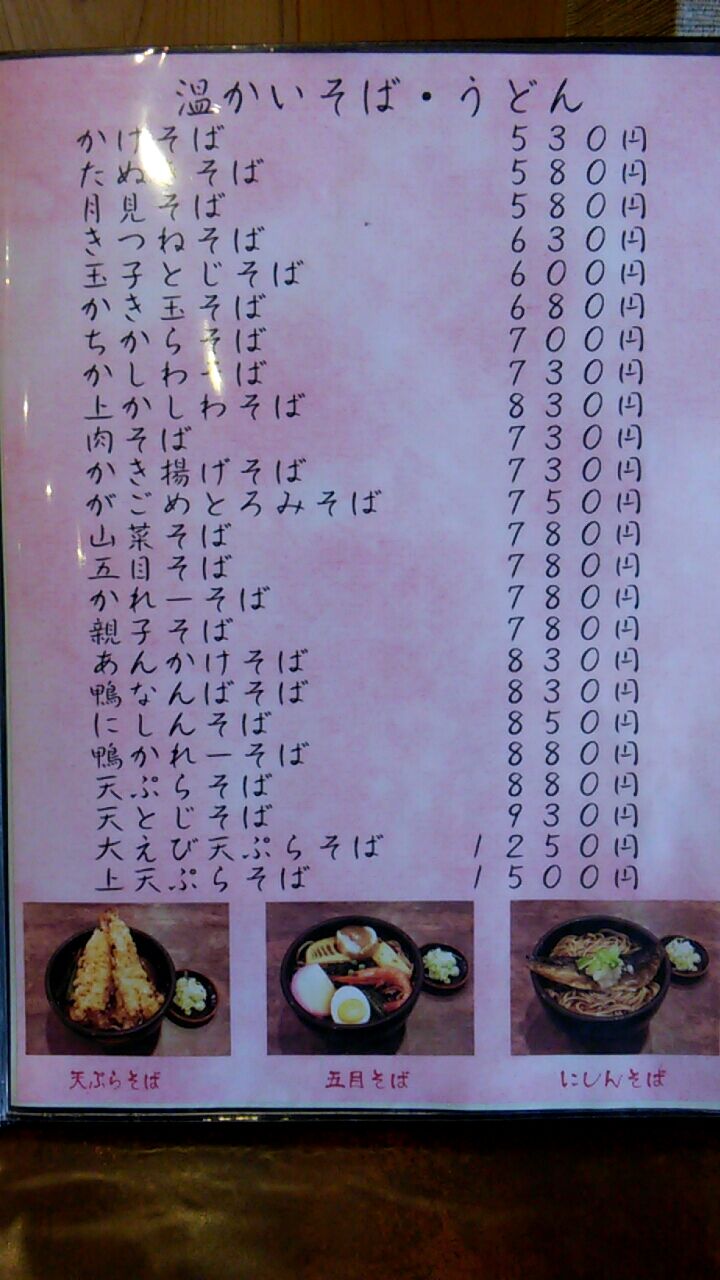 温かいそば・うどん
かけそば 530円
たぬきそば 580円
月見そば 580円
きつねそば 630円
玉子とじそば 600円
かき玉そば 680円
ちからそば 700円
かしわそば 730円
上かしわそば 830円
肉そば 730円
かき揚げそば 730円
がごめとろみそば 750円
山菜そば 780円
五目そば 780円
かれーそば 780円
親子そば 780円
あんかけそば 830円
鴨なんばそば 830円
にしんそば 850円
鴨かれーそば 880円
天ぷらそば 880円
天とじそば 930円
大えび天ぷらそば 1250円
上天ぷらそば 1500円
天ぷらそば
五目そば
にしんそば